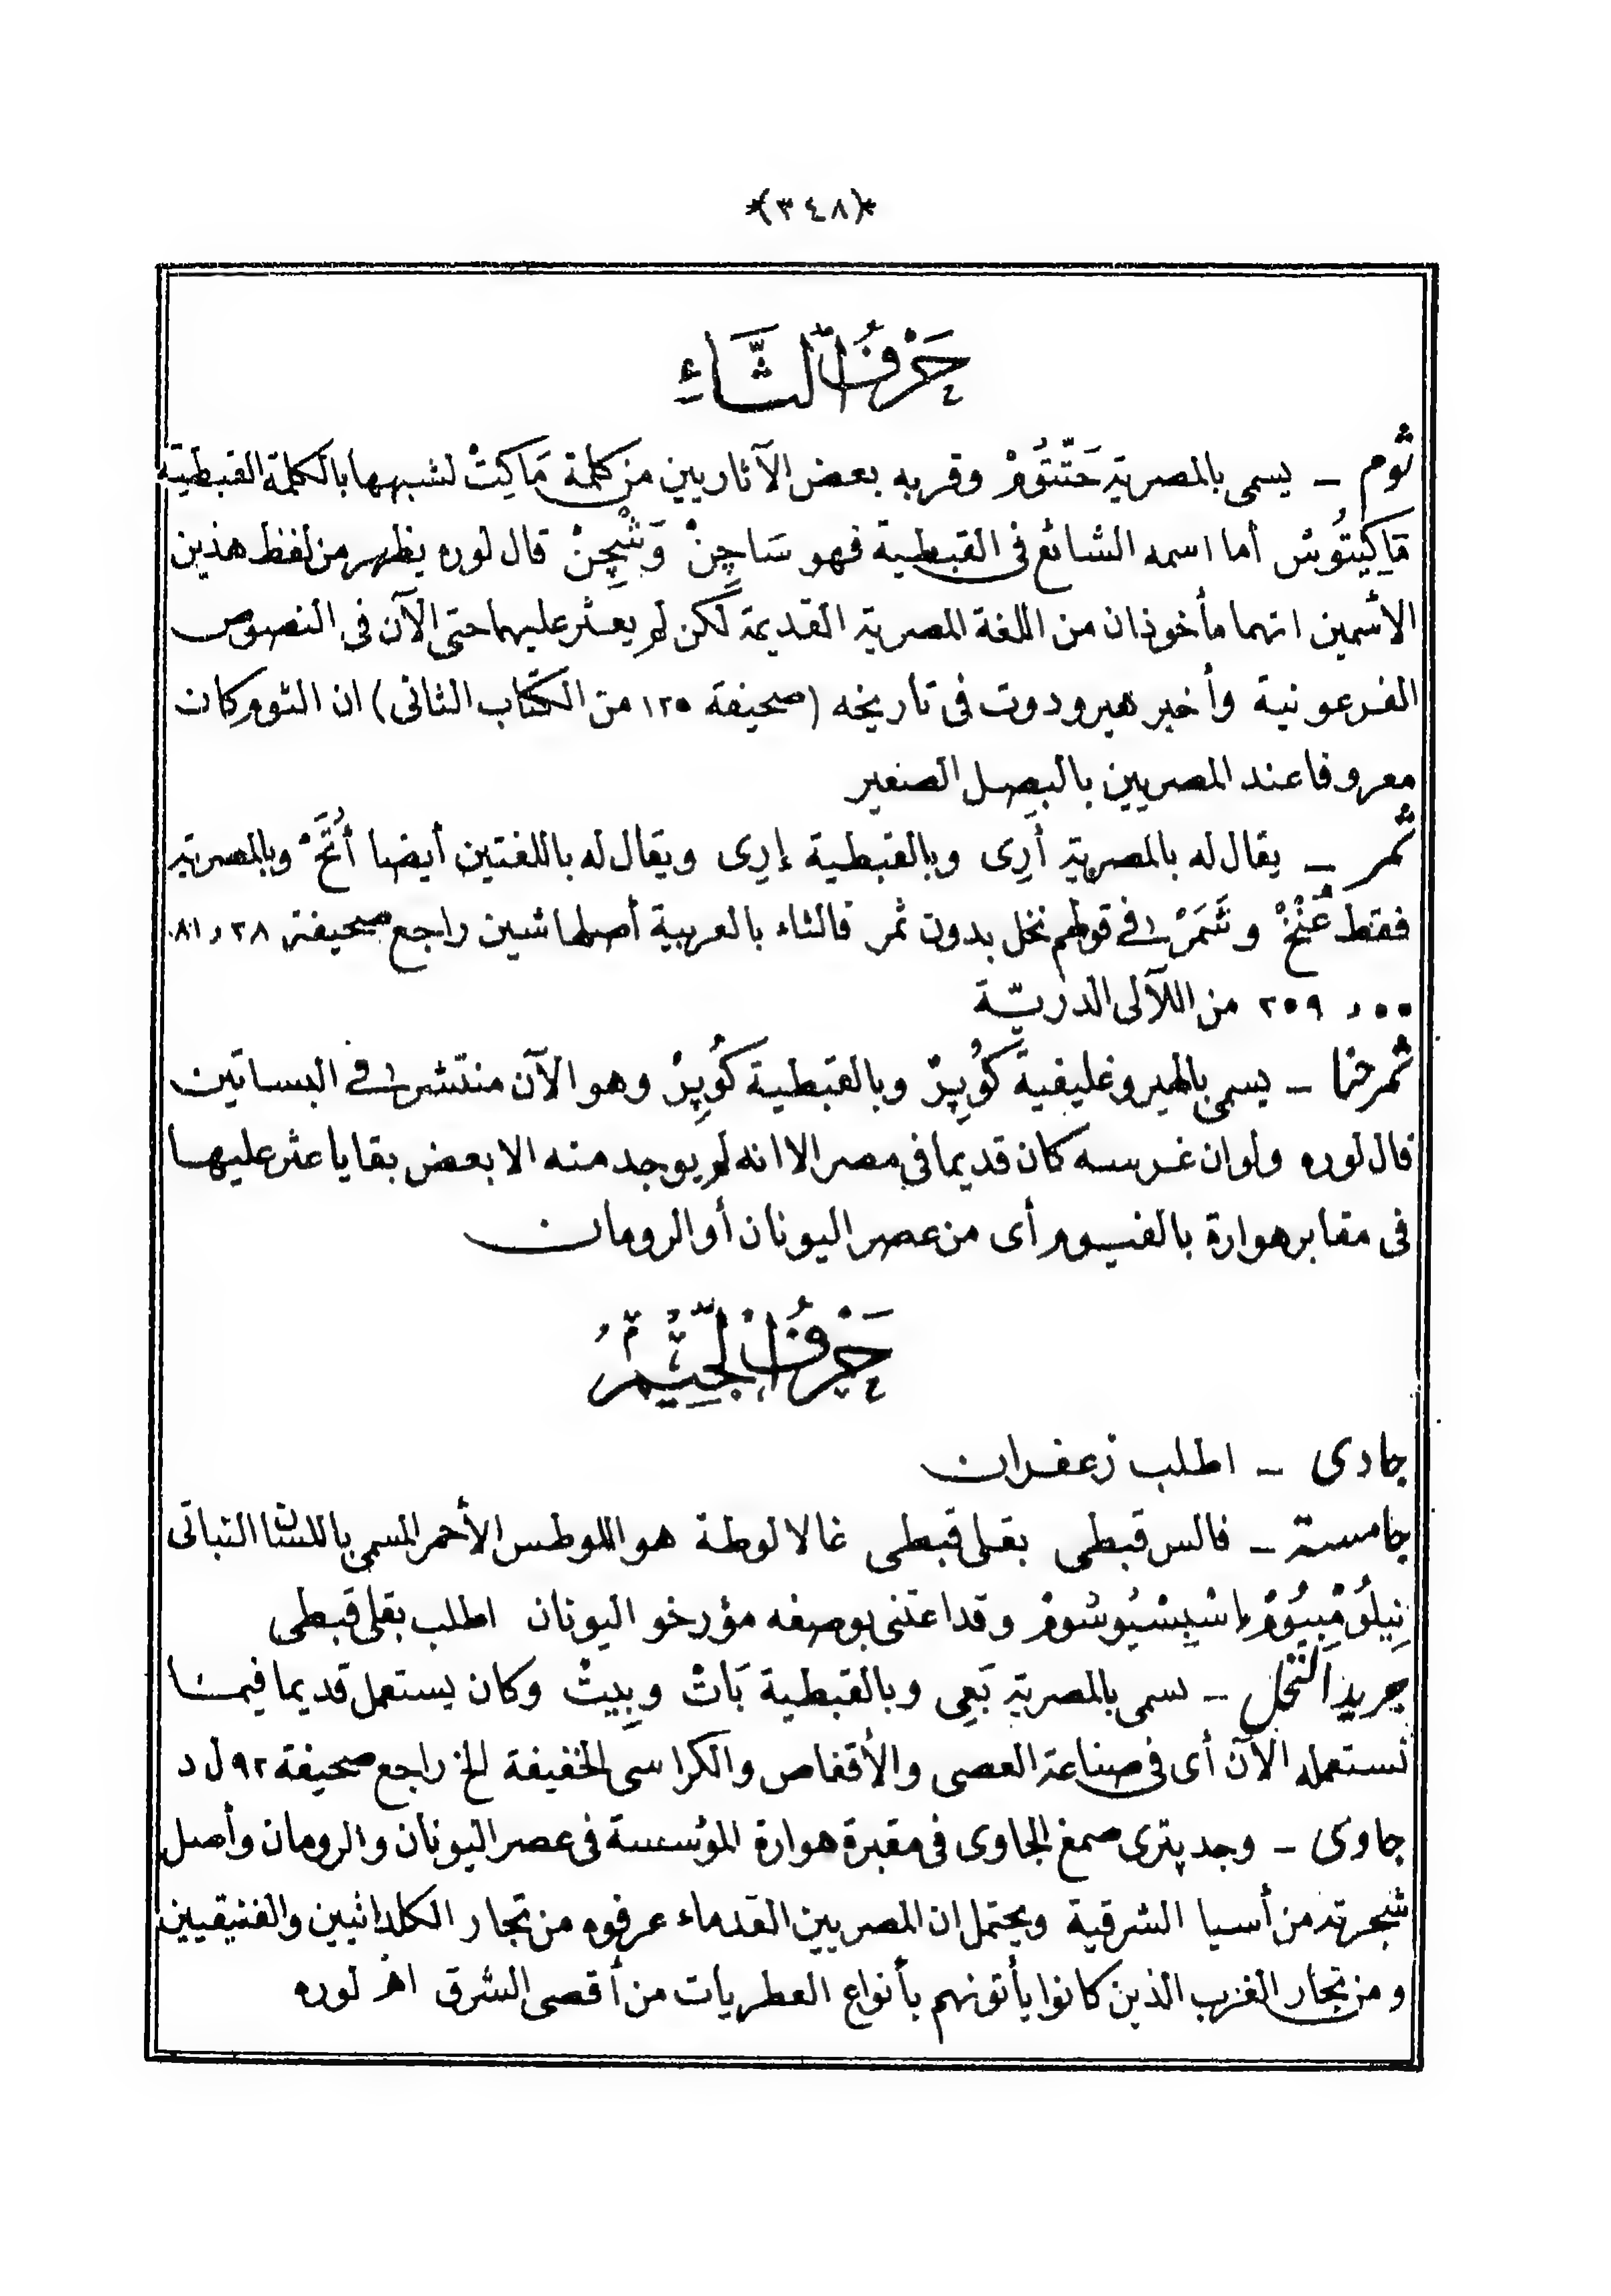 *(٣٤٨)*
حَرْفُ الثَّاءِ
ثوم – يسمى بالمصرية حَتّتُومْ وقربه بعض الآثاريين من كلمة مَاكِتْ لشبهها بالكلمة القبطية
مَاكِيتُوسْ أما اسمه الشائع فى القبطية فهو سَاجِنْ وَشْجِنْ قال لوره يظهر من لفظ هذين
الاسمين انهما مأخوذان من اللغة المصرية القديمة لكن لم يعثر عليهما حتى الآن فى النصوص
الفرعونية وأخبر هيرودوت فى تاريخه (صحيفة ١٢٥ من الكتاب الثانى) ان الثوم كان
معروفا عند المصريين بالبصل الصغير
ثمر – يقال له بالمصرية أَرِى وبالقبطية إرِى ويقال له باللغتين أيضا أُتَحْ وبالمصرية
فقط عُنْخْ و شَمَرْ فى قولهم نخل بدون ثمر فالثاء بالعربية أصلها شين راجع صحيفة ٢٨ و ٨١
٥٥ و ٢٥٩ من اللآلى الدريّة
ثمرحنا – يسمى بالهيروغليفية كُوبِرْ وبالقبطية كُوبِرْ وهو الآن منتشر فى البساتين
قال لوره ولوان غرسه كان قديما فى مصر الا انه لم يوجد منه الا بعض بقايا عثر عليها
فى مقابر هوارة بالفيوم أى من عصر اليونان أو الرومان
حَرْفُ الجِّيْمِ
جادى – اطلب زعفران
جامسة – فالس قبطى بقلى قبطى غالا لوطة هو اللوطس الأحمر المسمى باللسان النباتى
نِيلُومْبِيُومْ اسْبِسْيُوسُومْ وقد اعتنى بوصفه مؤرخو اليونان اطلب بقلى قبطى
جريد النخل – يسمى بالمصرية بَعِى وبالقبطية بَاتْ وبِيتْ وكان يستعمل قديما فيما
نستعمله الآن أى فى صناعة العصى والأقفاص والكراسى الخفيفة الخ راجع صحيفة ٩٢ ل د
جاوى – وجد پترى صمغ الجاوى فى مقبرة هوارة المؤسسة فى عصر اليونان والرومان وأصل
شجرته من أسيا الشرقية ويحتمل ان المصريين القدماء عرفوه من تجار الكلدانيين والفنيقيين
ومن تجار العرب الذين كانوا يأتونهم بأنواع العطريات من أقصى الشرق اهـ لوره